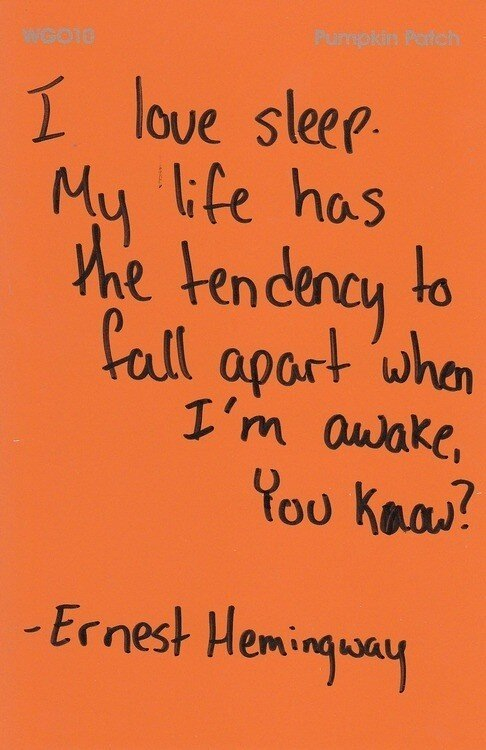 WG010 Pumpkin Patch
I love sleep.
My life has
the tendency to
fall apart when
I'm awake,
You Know?
-Ernest Hemingway